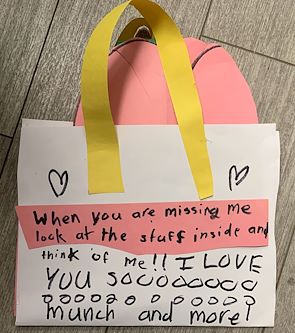 When you are missing me
look at the stuff inside and
think of me!! I LOVE
YOU SOOOOOOOO
OOOOOOOOOOO
munch and more!